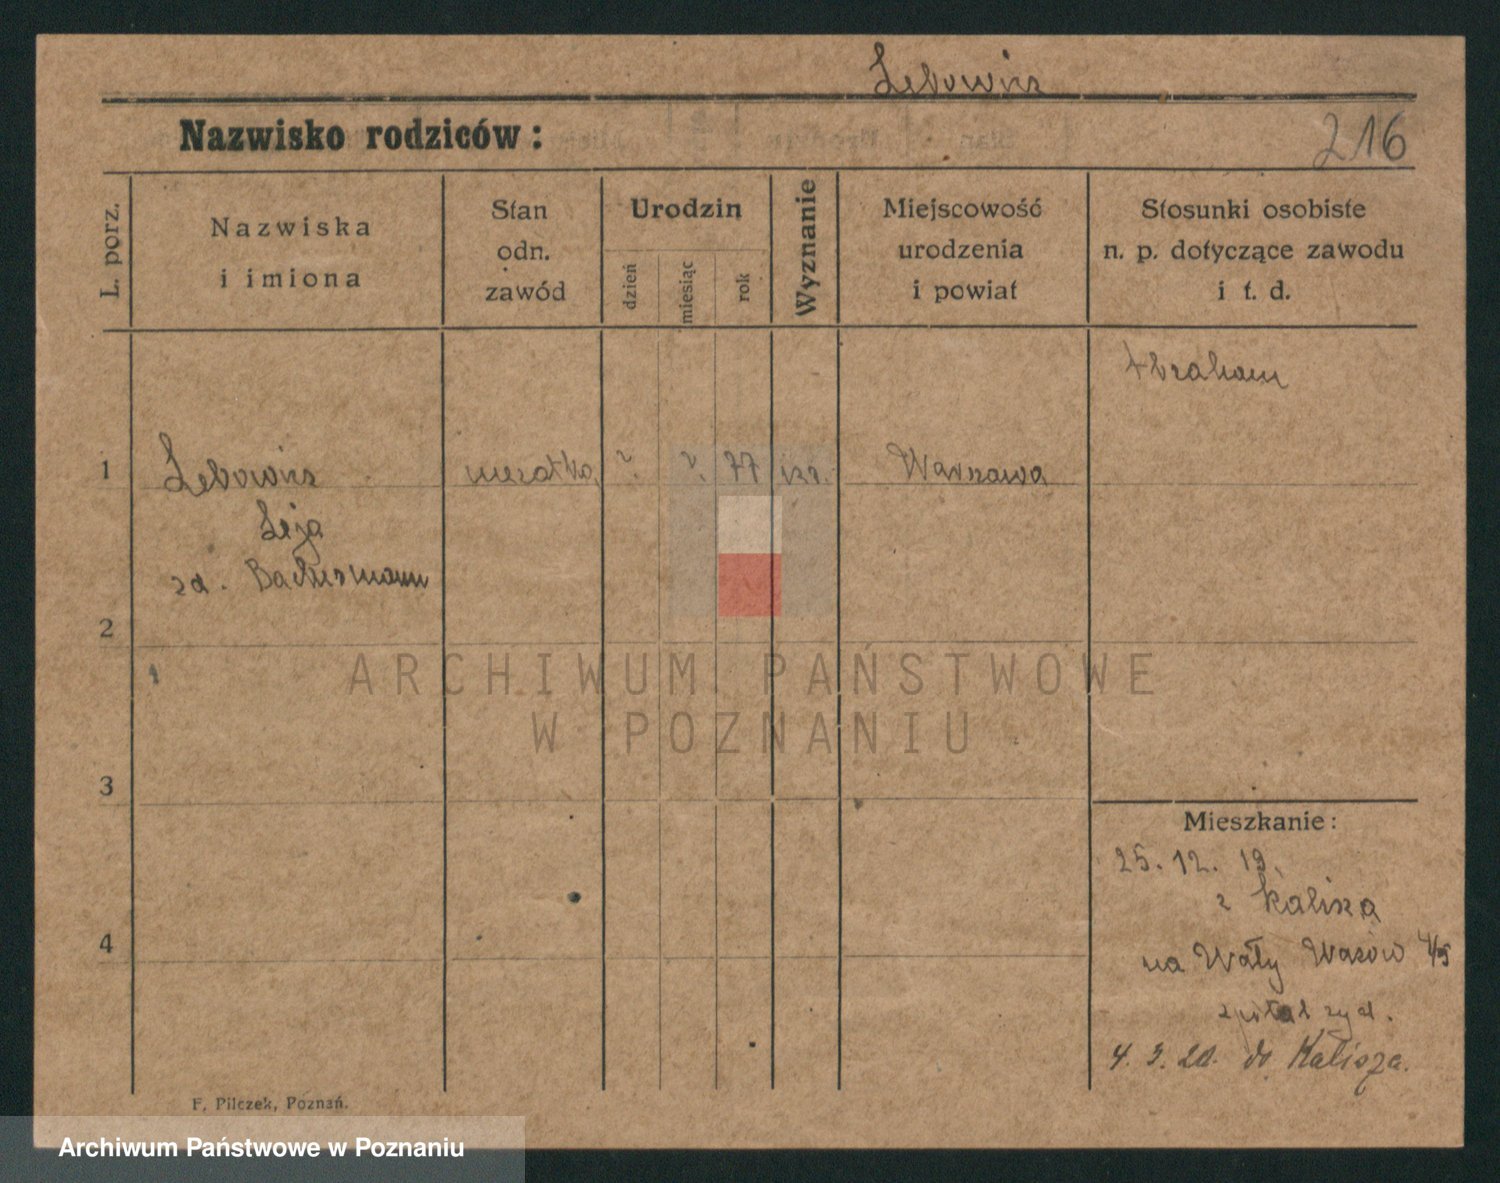 Lebowicz
Nazwisko rodziców:
216
L. porz.
Nazwiska
i imiona
Stan
odn.
zawód
Urodzin
dzień
miesiąc
rok
Wyznanie
Miejscowość
urodzenia
i powiat
Stosunki osobiste
n. p. dotyczące zawodu
i t. d.
Abraham
1
Lebowicz
mężatka
?
?
77
izr.
Warszawa
Leja
zd.
2
3
4
Mieszkanie:
25. 12. 19.
z Kalisza
na Wały Wazów 4/5
szpital żyd.
4. 3. 20. do Kalisza.
F. Pilczek, Poznań.
ARCHIWUM PAŃSTWOWE
W POZNANIU
Archiwum Państwowe w Poznaniu